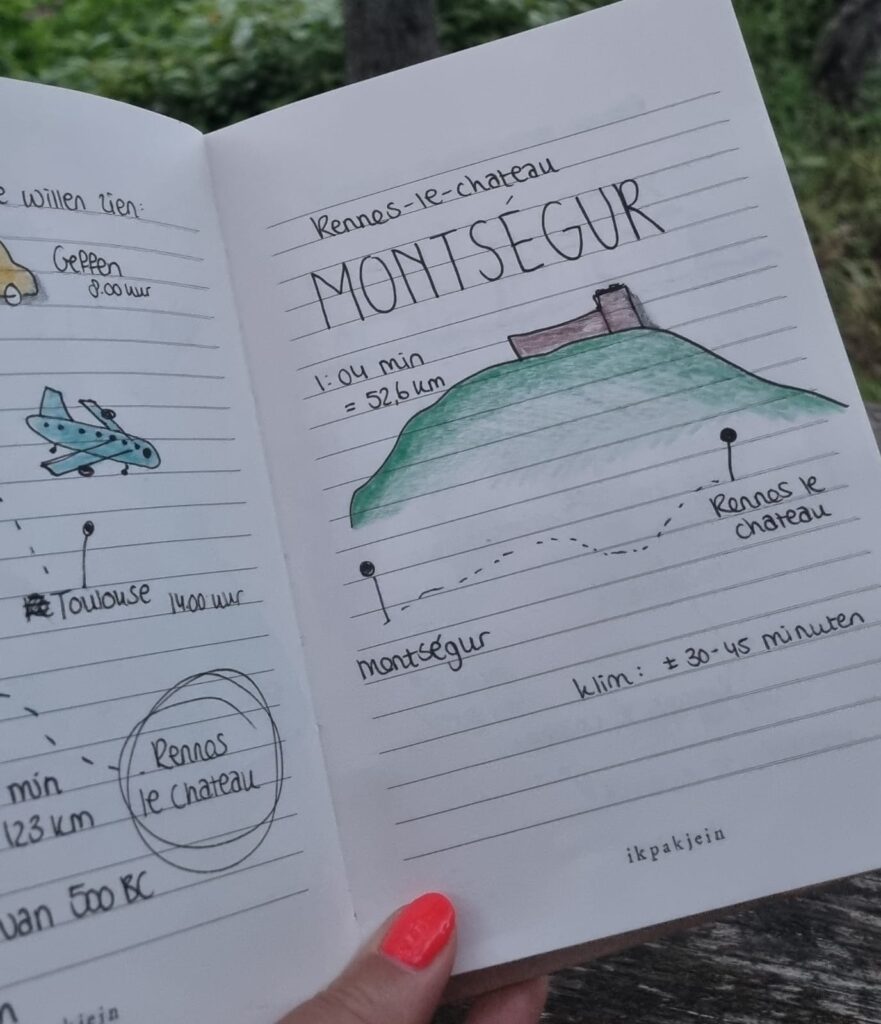 e willen zien:
Geffen
8.00 uur
Toulouse 14.00 uur
min
123 km
Rennes
le Chateau
van 500 BC
Rennes-le-chateau
MONTSÉGUR
1:04 min
= 52,6 km
Rennes le
chateau
montségur
klim: ± 30-45 minuten
ikpakjein